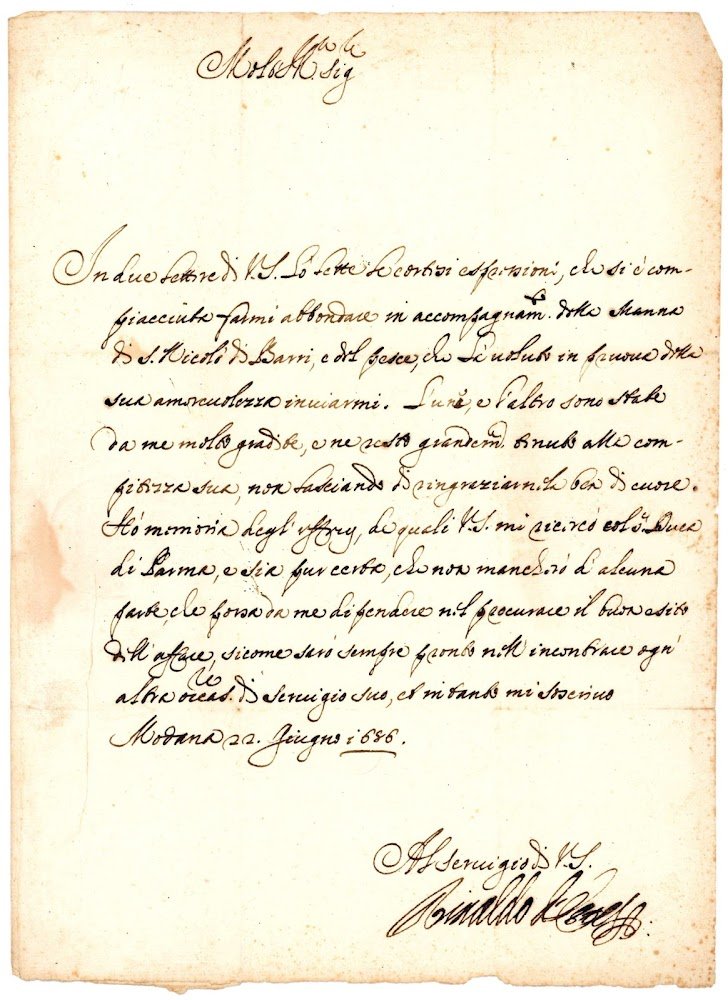 Molt' Ill.re Sig.re
In due lettere di V.S. hò lette le cortesi espressioni, che si è com-
piacciuta farmi abbondare in accompagnam.to della Manna
di S. Nicolò di Barri, e del pesce, che hà voluto in pruova della
sua amorevolezza inviarmi. L'uno, e l'altro sono stati
da me molto graditi, e ne resto grandem.te tenuto alla com-
pitezza sua, non lasciando di ringraziarnela ben di cuore.
Hò memoria degl' uffizij, de quali V.S. mi ricercò col S.r Duca
di Parma, e sia pur certa, che non mancherò d' alcuna
parte, che possa da me dipendere nel procurare il buon esito
dell' affare, sicome sarò sempre pronto nell' incontrare ogn'
altra occas.ne di servigio suo, et intanto mi soscrivo
Modana 22. Giugno 1686.
Al servigio di V.S.
Rinaldo d'Este